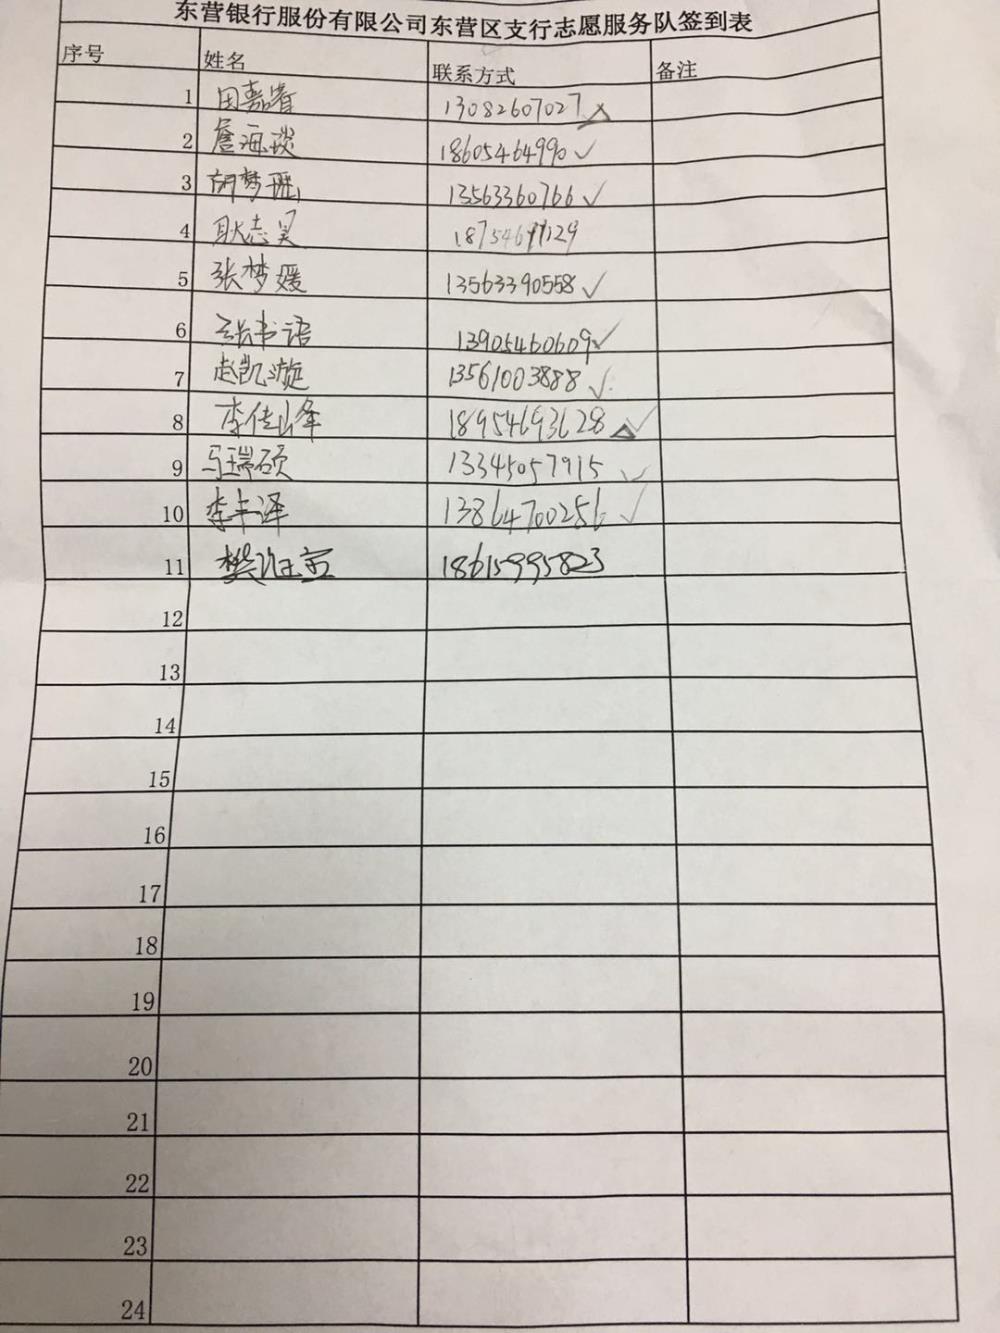 东营银行股份有限公司东营区支行志愿服务队签到表
序号 姓名 联系方式 备注
1 田嘉睿 13082607027 △
2 詹海琰 18605464990 ✓
3 胡梦 13563360766 ✓
4 耿志昊 18754671129
5 张梦媛 13563390558 ✓
6 张书语 13905460609 ✓
7 赵凯漩 13561003888 ✓
8 李佳峰 18954693628 △ ✓
9 马瑞硕 13345057915 ✓
10 李丰泽 13864700256 ✓
11 樊 18615995823
12
13
14
15
16
17
18
19
20
21
22
23
24